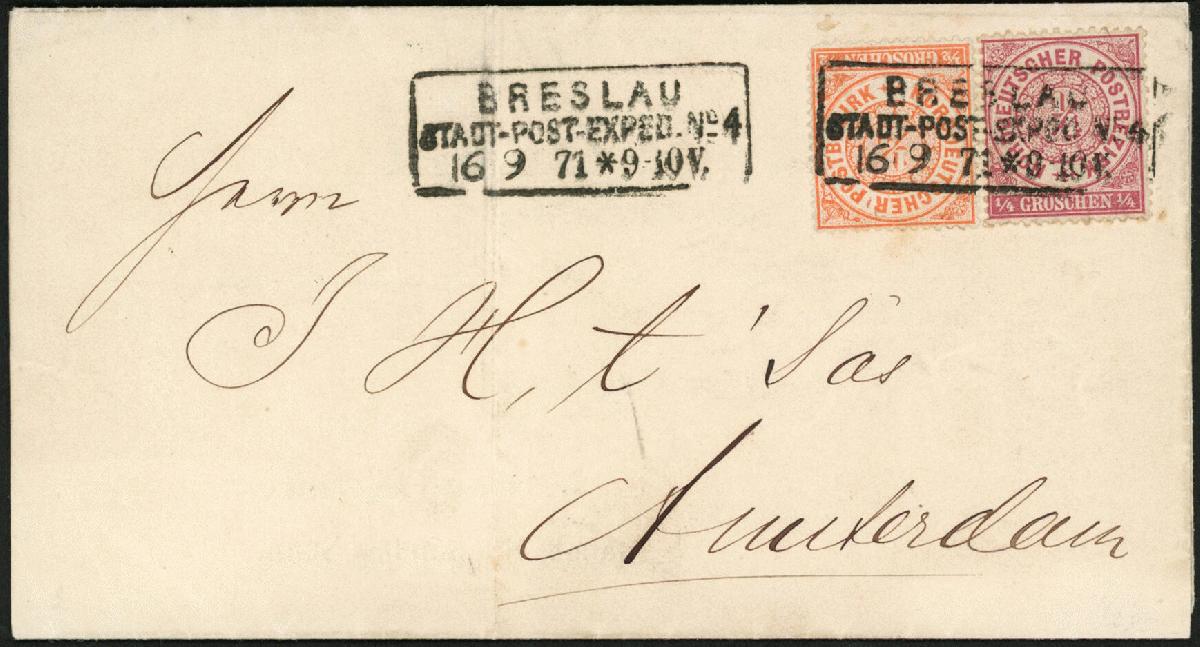 BRESLAU
STADT-POST-EXPED. No 4
16 9 71 * 9-10 V.
BRESLAU
STADT-POST-EXPED. N. 4
16 9 71 * 9-10 V.
1/2 GROSCHEN 1/2
NORDDEUTSCHER POSTBEZIRK
NORDDEUTSCHER POSTBEZIRK
1/4 GROSCHEN 1/4
Herrn
J H, t' Sas
Amsterdam